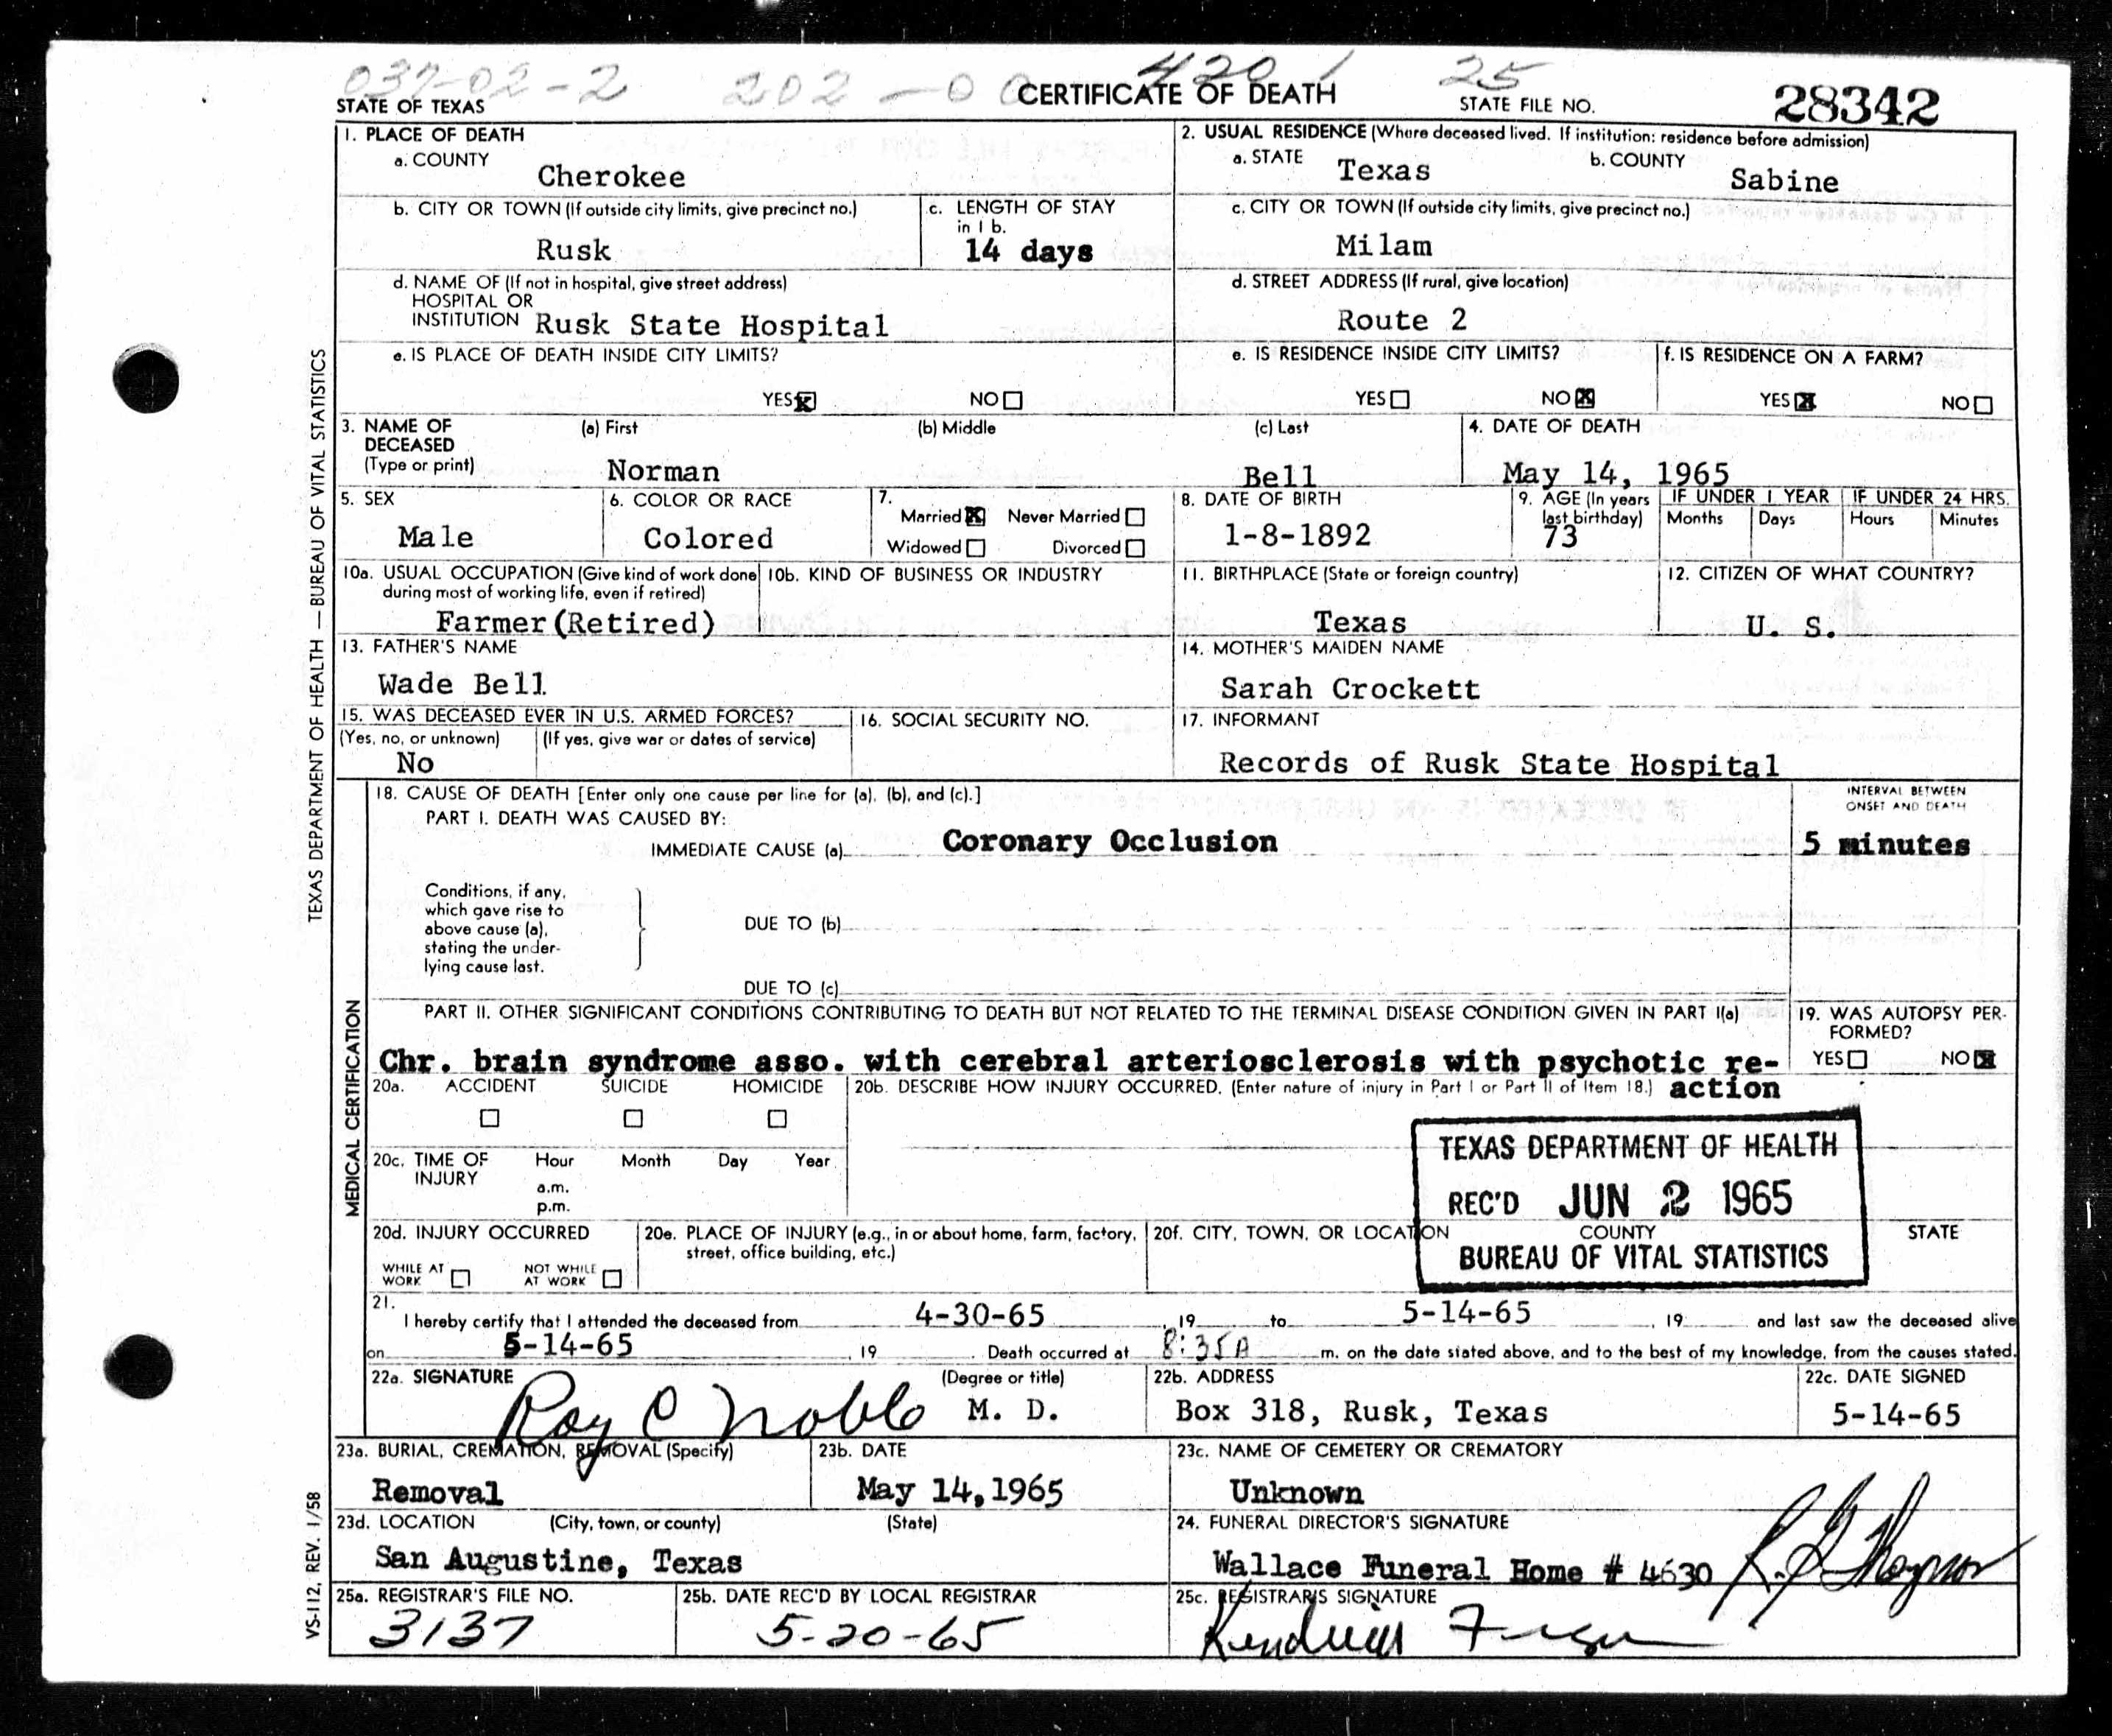 037-02-2 202-00 420.1 25
STATE OF TEXAS CERTIFICATE OF DEATH STATE FILE NO. 28342
1. PLACE OF DEATH
a. COUNTY
Cherokee
2. USUAL RESIDENCE (Where deceased lived. If institution: residence before admission)
a. STATE b. COUNTY
Texas Sabine
b. CITY OR TOWN (If outside city limits, give precinct no.)
Rusk
c. LENGTH OF STAY
in 1 b.
14 days
c. CITY OR TOWN (If outside city limits, give precinct no.)
Milam
d. NAME OF (If not in hospital, give street address)
HOSPITAL OR
INSTITUTION Rusk State Hospital
d. STREET ADDRESS (If rural, give location)
Route 2
e. IS PLACE OF DEATH INSIDE CITY LIMITS?
YES X NO
e. IS RESIDENCE INSIDE CITY LIMITS?
YES NO X
f. IS RESIDENCE ON A FARM?
YES X NO
3. NAME OF (a) First (b) Middle (c) Last
DECEASED
(Type or print) Norman Bell
4. DATE OF DEATH
May 14, 1965
5. SEX
Male
6. COLOR OR RACE
Colored
7.
Married X Never Married
Widowed Divorced
8. DATE OF BIRTH
1-8-1892
9. AGE (In years
last birthday)
73
IF UNDER 1 YEAR
Months Days
IF UNDER 24 HRS.
Hours Minutes
10a. USUAL OCCUPATION (Give kind of work done
during most of working life, even if retired)
Farmer(Retired)
10b. KIND OF BUSINESS OR INDUSTRY
11. BIRTHPLACE (State or foreign country)
Texas
12. CITIZEN OF WHAT COUNTRY?
U. S.
13. FATHER'S NAME
Wade Bell
14. MOTHER'S MAIDEN NAME
Sarah Crockett
15. WAS DECEASED EVER IN U.S. ARMED FORCES?
(Yes, no, or unknown) (If yes, give war or dates of service)
No
16. SOCIAL SECURITY NO.
17. INFORMANT
Records of Rusk State Hospital
18. CAUSE OF DEATH [Enter only one cause per line for (a), (b), and (c).]
PART I. DEATH WAS CAUSED BY:
IMMEDIATE CAUSE (a) Coronary Occlusion
INTERVAL BETWEEN
ONSET AND DEATH
5 minutes
Conditions, if any,
which gave rise to
above cause (a),
stating the under-
lying cause last.
DUE TO (b)
DUE TO (c)
PART II. OTHER SIGNIFICANT CONDITIONS CONTRIBUTING TO DEATH BUT NOT RELATED TO THE TERMINAL DISEASE CONDITION GIVEN IN PART I(a)
Chr. brain syndrome asso. with cerebral arteriosclerosis with psychotic re-
action
19. WAS AUTOPSY PER-
FORMED?
YES NO X
20a. ACCIDENT SUICIDE HOMICIDE
20b. DESCRIBE HOW INJURY OCCURRED. (Enter nature of injury in Part I or Part II of Item 18.)
20c. TIME OF Hour Month Day Year
INJURY
a.m.
p.m.
TEXAS DEPARTMENT OF HEALTH
REC'D JUN 2 1965
BUREAU OF VITAL STATISTICS
20d. INJURY OCCURRED
WHILE AT
WORK
NOT WHILE
AT WORK
20e. PLACE OF INJURY (e.g., in or about home, farm, factory,
street, office building, etc.)
20f. CITY, TOWN, OR LOCATION COUNTY STATE
21.
I hereby certify that I attended the deceased from 4-30-65, 19 to 5-14-65, 19 and last saw the deceased alive
on 5-14-65, 19 . Death occurred at 8:35A m. on the date stated above, and to the best of my knowledge, from the causes stated.
22a. SIGNATURE (Degree or title)
Roy C Noble M. D.
22b. ADDRESS
Box 318, Rusk, Texas
22c. DATE SIGNED
5-14-65
23a. BURIAL, CREMATION, REMOVAL (Specify)
Removal
23b. DATE
May 14,1965
23c. NAME OF CEMETERY OR CREMATORY
Unknown
23d. LOCATION (City, town, or county) (State)
San Augustine, Texas
24. FUNERAL DIRECTOR'S SIGNATURE
Wallace Funeral Home # 4630
25a. REGISTRAR'S FILE NO.
3137
25b. DATE REC'D BY LOCAL REGISTRAR
5-20-65
25c. REGISTRAR'S SIGNATURE
TEXAS DEPARTMENT OF HEALTH — BUREAU OF VITAL STATISTICS
MEDICAL CERTIFICATION
VS-112, REV. 1/58